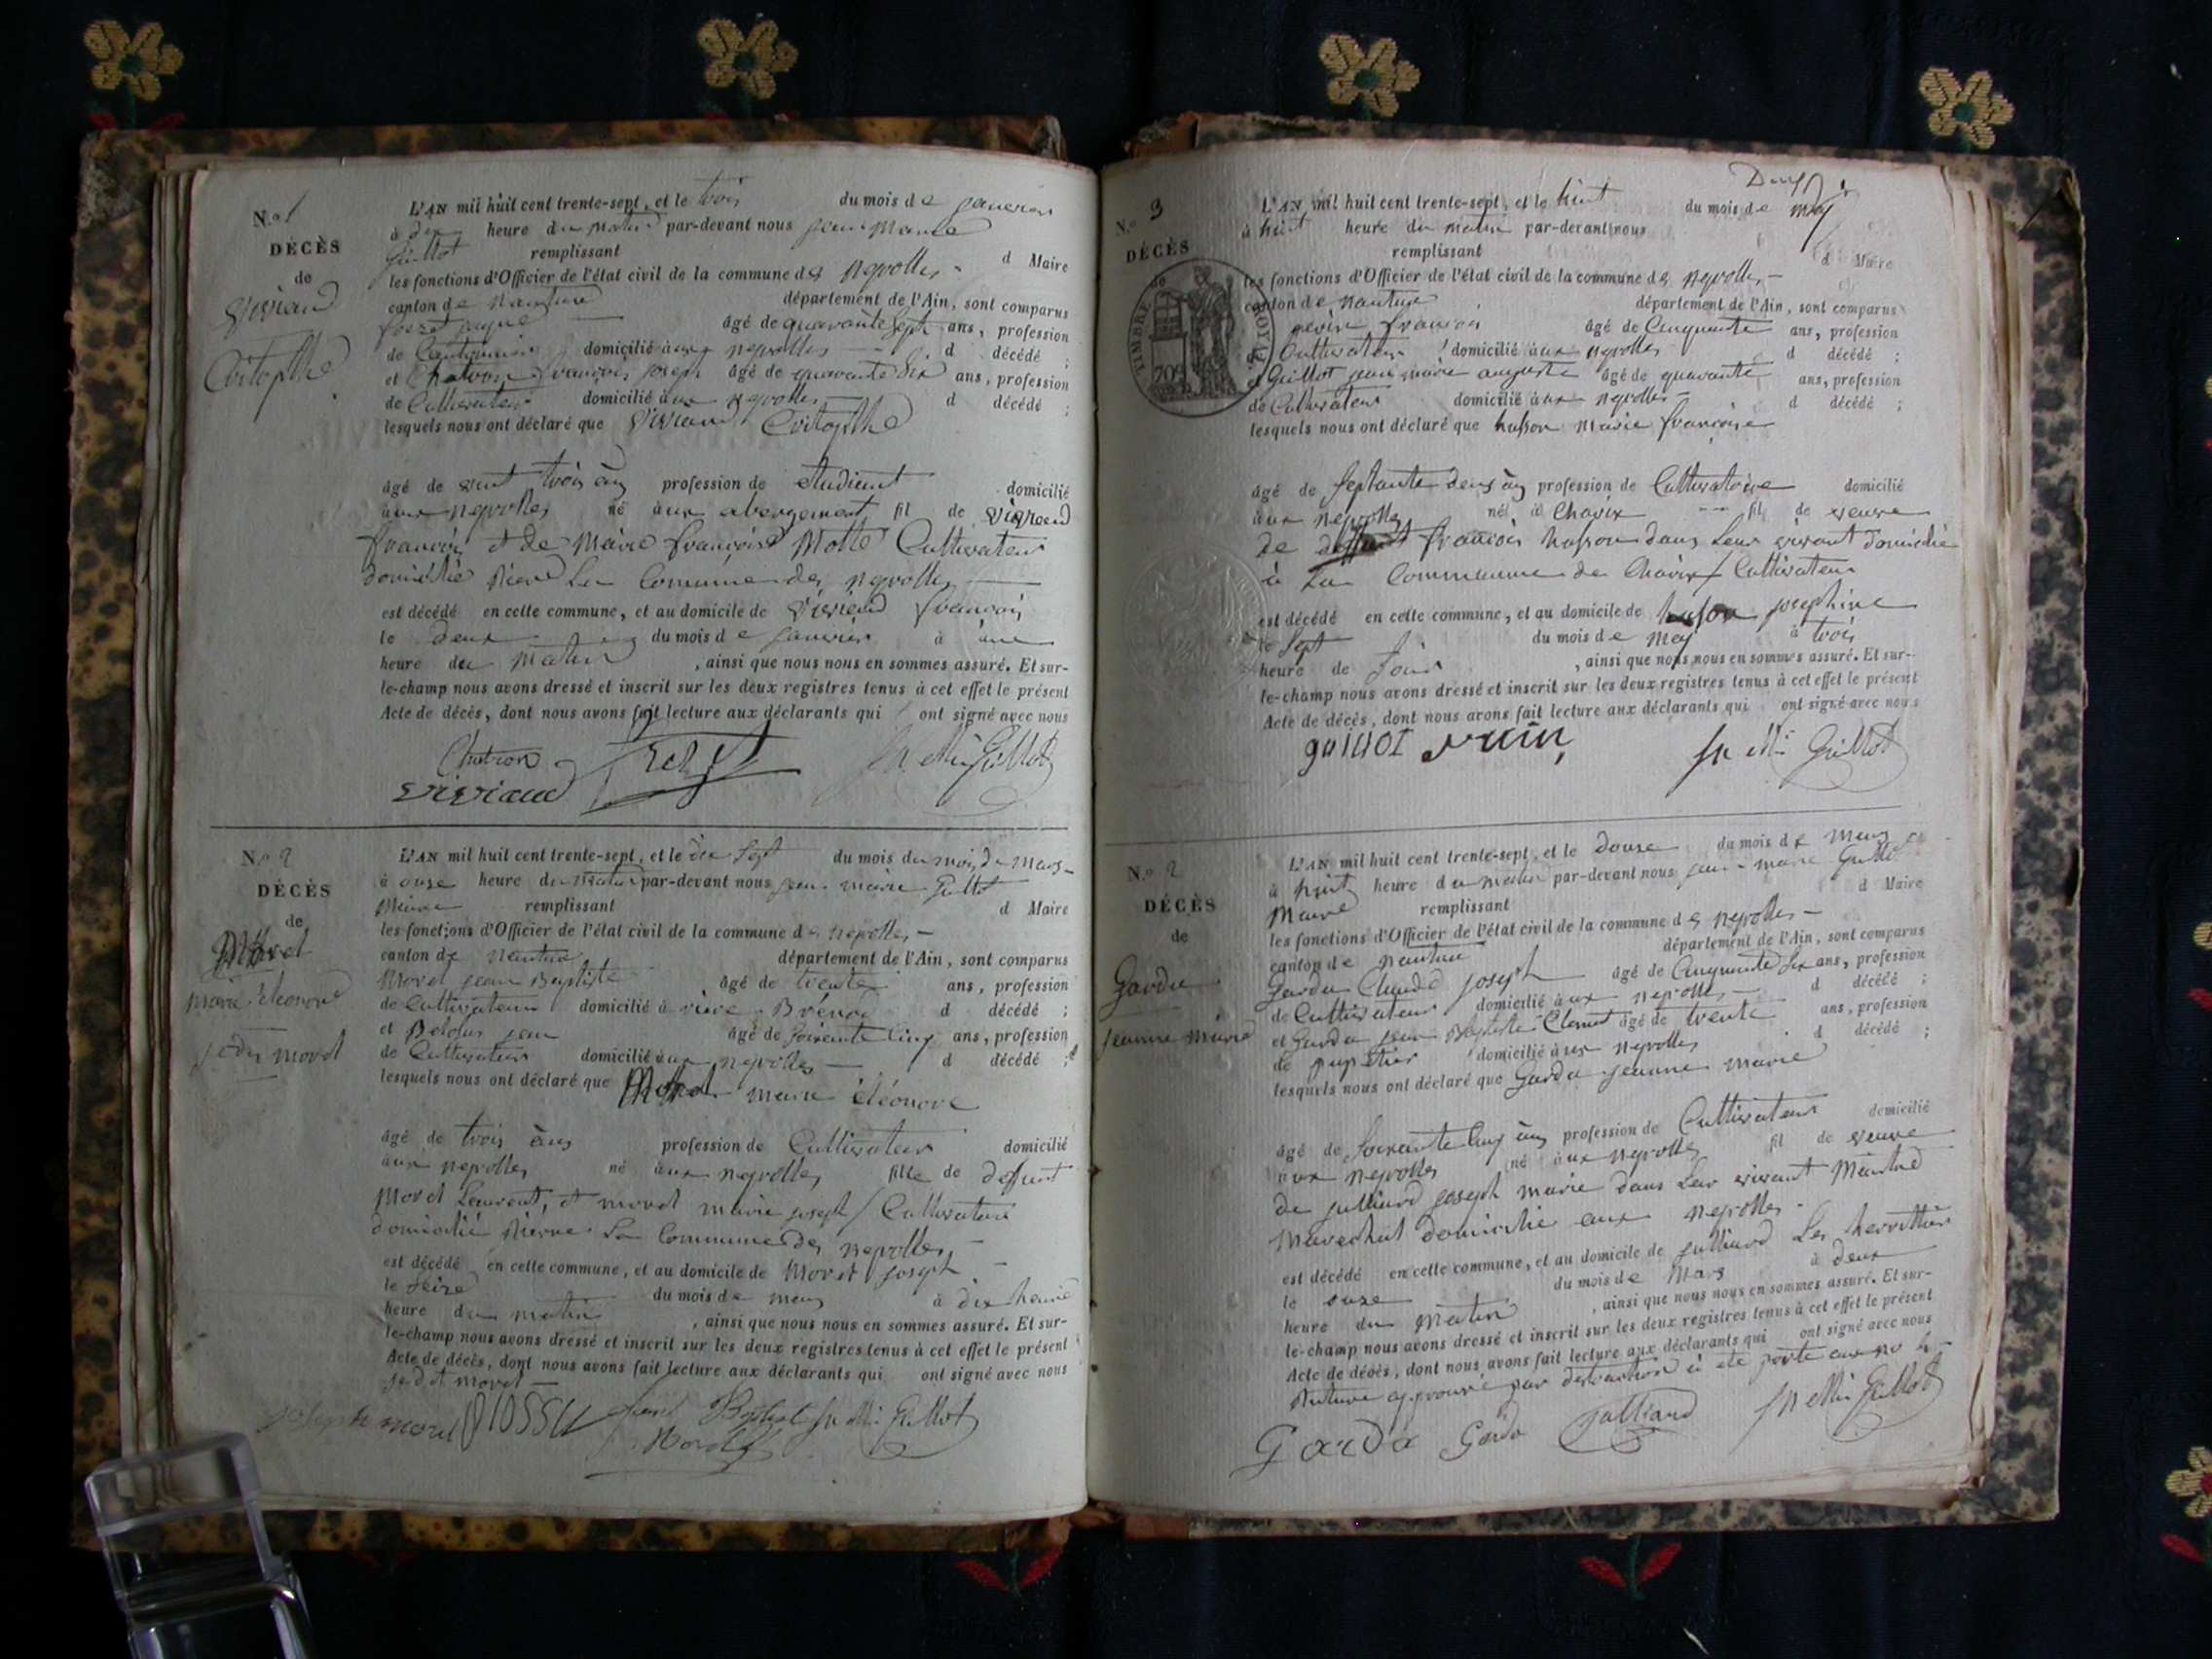 N.º 1
DÉCÈS
de
Viviand
L'AN mil huit cent trente-sept, et le trois du mois de janvier
à dix heure du matin par-devant nous jean Marie
Guillot remplissant d Maire
les fonctions d'Officier de l'état civil de la commune des neyrolles
canton de nantua département de l'Ain, sont comparus
âgé de quarante sept ans, profession
de domicilié aux neyrolles d décédé ;
et Chatron françois joseph âgé de quarante six ans, profession
de Cultivateur domicilié aux neyrolles d décédé ;
lesquels nous ont déclaré que Viviand
âgé de vint trois ans profession de etudient domicilié
aux neyrolles né aux abergement fil de viviand
françois et de Marie françoise Motte Cultivateur
domicilié rière La Comune des neyrolles
est décédé en cette commune, et au domicile de viviand françois
le deux du mois de janvier à une
heure du Matin , ainsi que nous nous en sommes assuré. Et sur-
le-champ nous avons dressé et inscrit sur les deux registres tenus à cet effet le présent
Acte de décès, dont nous avons fait lecture aux déclarants qui ont signé avec nous
Chatron
viviand
Jn Mie Guillot
N.º 2
DÉCÈS
de
Morel
marie éléonore
morel
L'AN mil huit cent trente-sept, et le dix sept du mois du mois de Mars
à onze heure du matin par-devant nous jean marie Guillot
Maire remplissant d Maire
les fonctions d'Officier de l'état civil de la commune des neyrolles
canton de nantua département de l'Ain, sont comparus
Morel jean Baptiste âgé de trente ans, profession
de Cultivateur domicilié à d décédé ;
et jean âgé de soixante cinq ans, profession
de Cultivateur domicilié aux neyrolles d décédé ;
lesquels nous ont déclaré que marie éléonore
âgé de trois ans profession de Cultivateur domicilié
aux neyrolles né aux neyrolles fille de deffunt
Morel Laurent, et morel marie joseph / Cultivateur
domicilié rière La Commune des neyrolles
est décédé en cette commune, et au domicile de Morel joseph
le seize du mois de mars à dix heure
heure du matin , ainsi que nous nous en sommes assuré. Et sur-
le-champ nous avons dressé et inscrit sur les deux registres tenus à cet effet le présent
Acte de décès, dont nous avons fait lecture aux déclarants qui ont signé avec nous
joseph morel Jn Mie Guillot
Morel
N.º 3
DÉCÈS
de
TIMBRE ROYAL
70c
L'AN mil huit cent trente-sept, et le huit du mois de may
à huit heure du matin par-devant nous
remplissant d Maire
les fonctions d'Officier de l'état civil de la commune des neyrolles
canton de nantua département de l'Ain, sont comparus
françois âgé de Cinquante ans, profession
Cultivateur domicilié aux neyrolles d décédé ;
et Guillot jean marie auguste âgé de quarante ans, profession
de Cultivateur domicilié aux neyrolles d décédé ;
lesquels nous ont déclaré que husson Marie françoise
âgé de septante deux ans profession de Cultivatrice domicilié
aux neyrolles né à Chavix fil de veuve
de deffunt françois husson dans Leur vivant domicilié
à La Commune de Chavix / Cultivateur
est décédé en cette commune, et au domicile de husson josephine
le sept du mois de may à trois
heure de soir , ainsi que nous nous en sommes assuré. Et sur-
le-champ nous avons dressé et inscrit sur les deux registres tenus à cet effet le présent
Acte de décès, dont nous avons fait lecture aux déclarants qui ont signé avec nous
guillot Jn Mie Guillot
N.º 2
DÉCÈS
de
Garda
jeanne Marie
L'AN mil huit cent trente-sept, et le douse du mois de Mars
à huit heure du matin par-devant nous jean marie Guillot
Maire remplissant d Maire
les fonctions d'Officier de l'état civil de la commune des neyrolles
canton de nantua département de l'Ain, sont comparus
Garda Claude joseph âgé de Cinquante six ans, profession
de Cultivateur domicilié aux neyrolles d décédé ;
et Garda jean Baptiste Clement âgé de trente ans, profession
de papetier domicilié aux neyrolles d décédé ;
lesquels nous ont déclaré que Garda jeanne marie
âgé de soixante cinq ans profession de Cultivateur domicilié
aux neyrolles né aux neyrolles fil de veuve
de julliard joseph marie dans Leur vivant Maitre
Marechal domicilié aux neyrolles
est décédé en cette commune, et au domicile de julliard Les herittier
le onze du mois de Mars à deux
heure du Matin , ainsi que nous nous en sommes assuré. Et sur-
le-champ nous avons dressé et inscrit sur les deux registres tenus à cet effet le présent
Acte de décès, dont nous avons fait lecture aux déclarants qui ont signé avec nous
par distraction à été porté aux no
Garda Garda Julliard Jn Mie Guillot